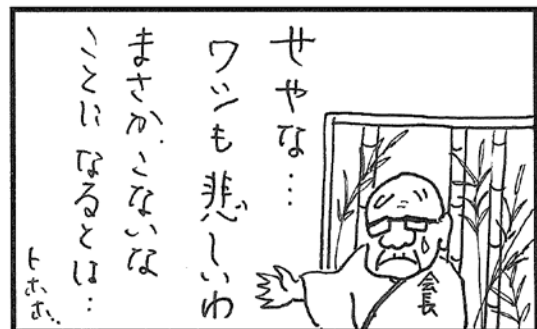 せやな…
ワシも悲しいわ
まさか、こないな
ことになるとは…
トホホ…
会長